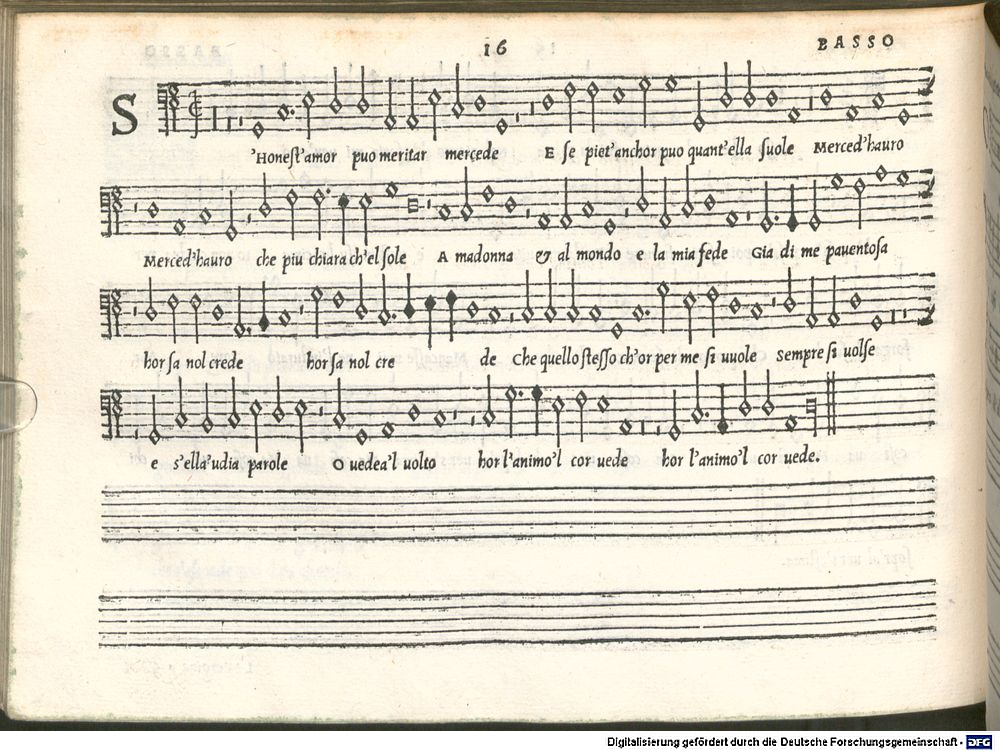 16
BASSO
S
'Honest'amor puo meritar mercede E se piet'anchor puo quant'ella suole Merced'hauro
Merced'hauro che piu chiara ch'el sole A madonna & al mondo e la mia fede Gia di me pauentosa
hor sa nol crede hor sa nol cre de Che quello stesso ch'or per me si vuole sempre si volse
e s'ella'udia parole O vedea'l volto hor l'animo'l cor uede hor l'animo'l cor uede.
Digitalisierung gefördert durch die Deutsche Forschungsgemeinschaft - DFG